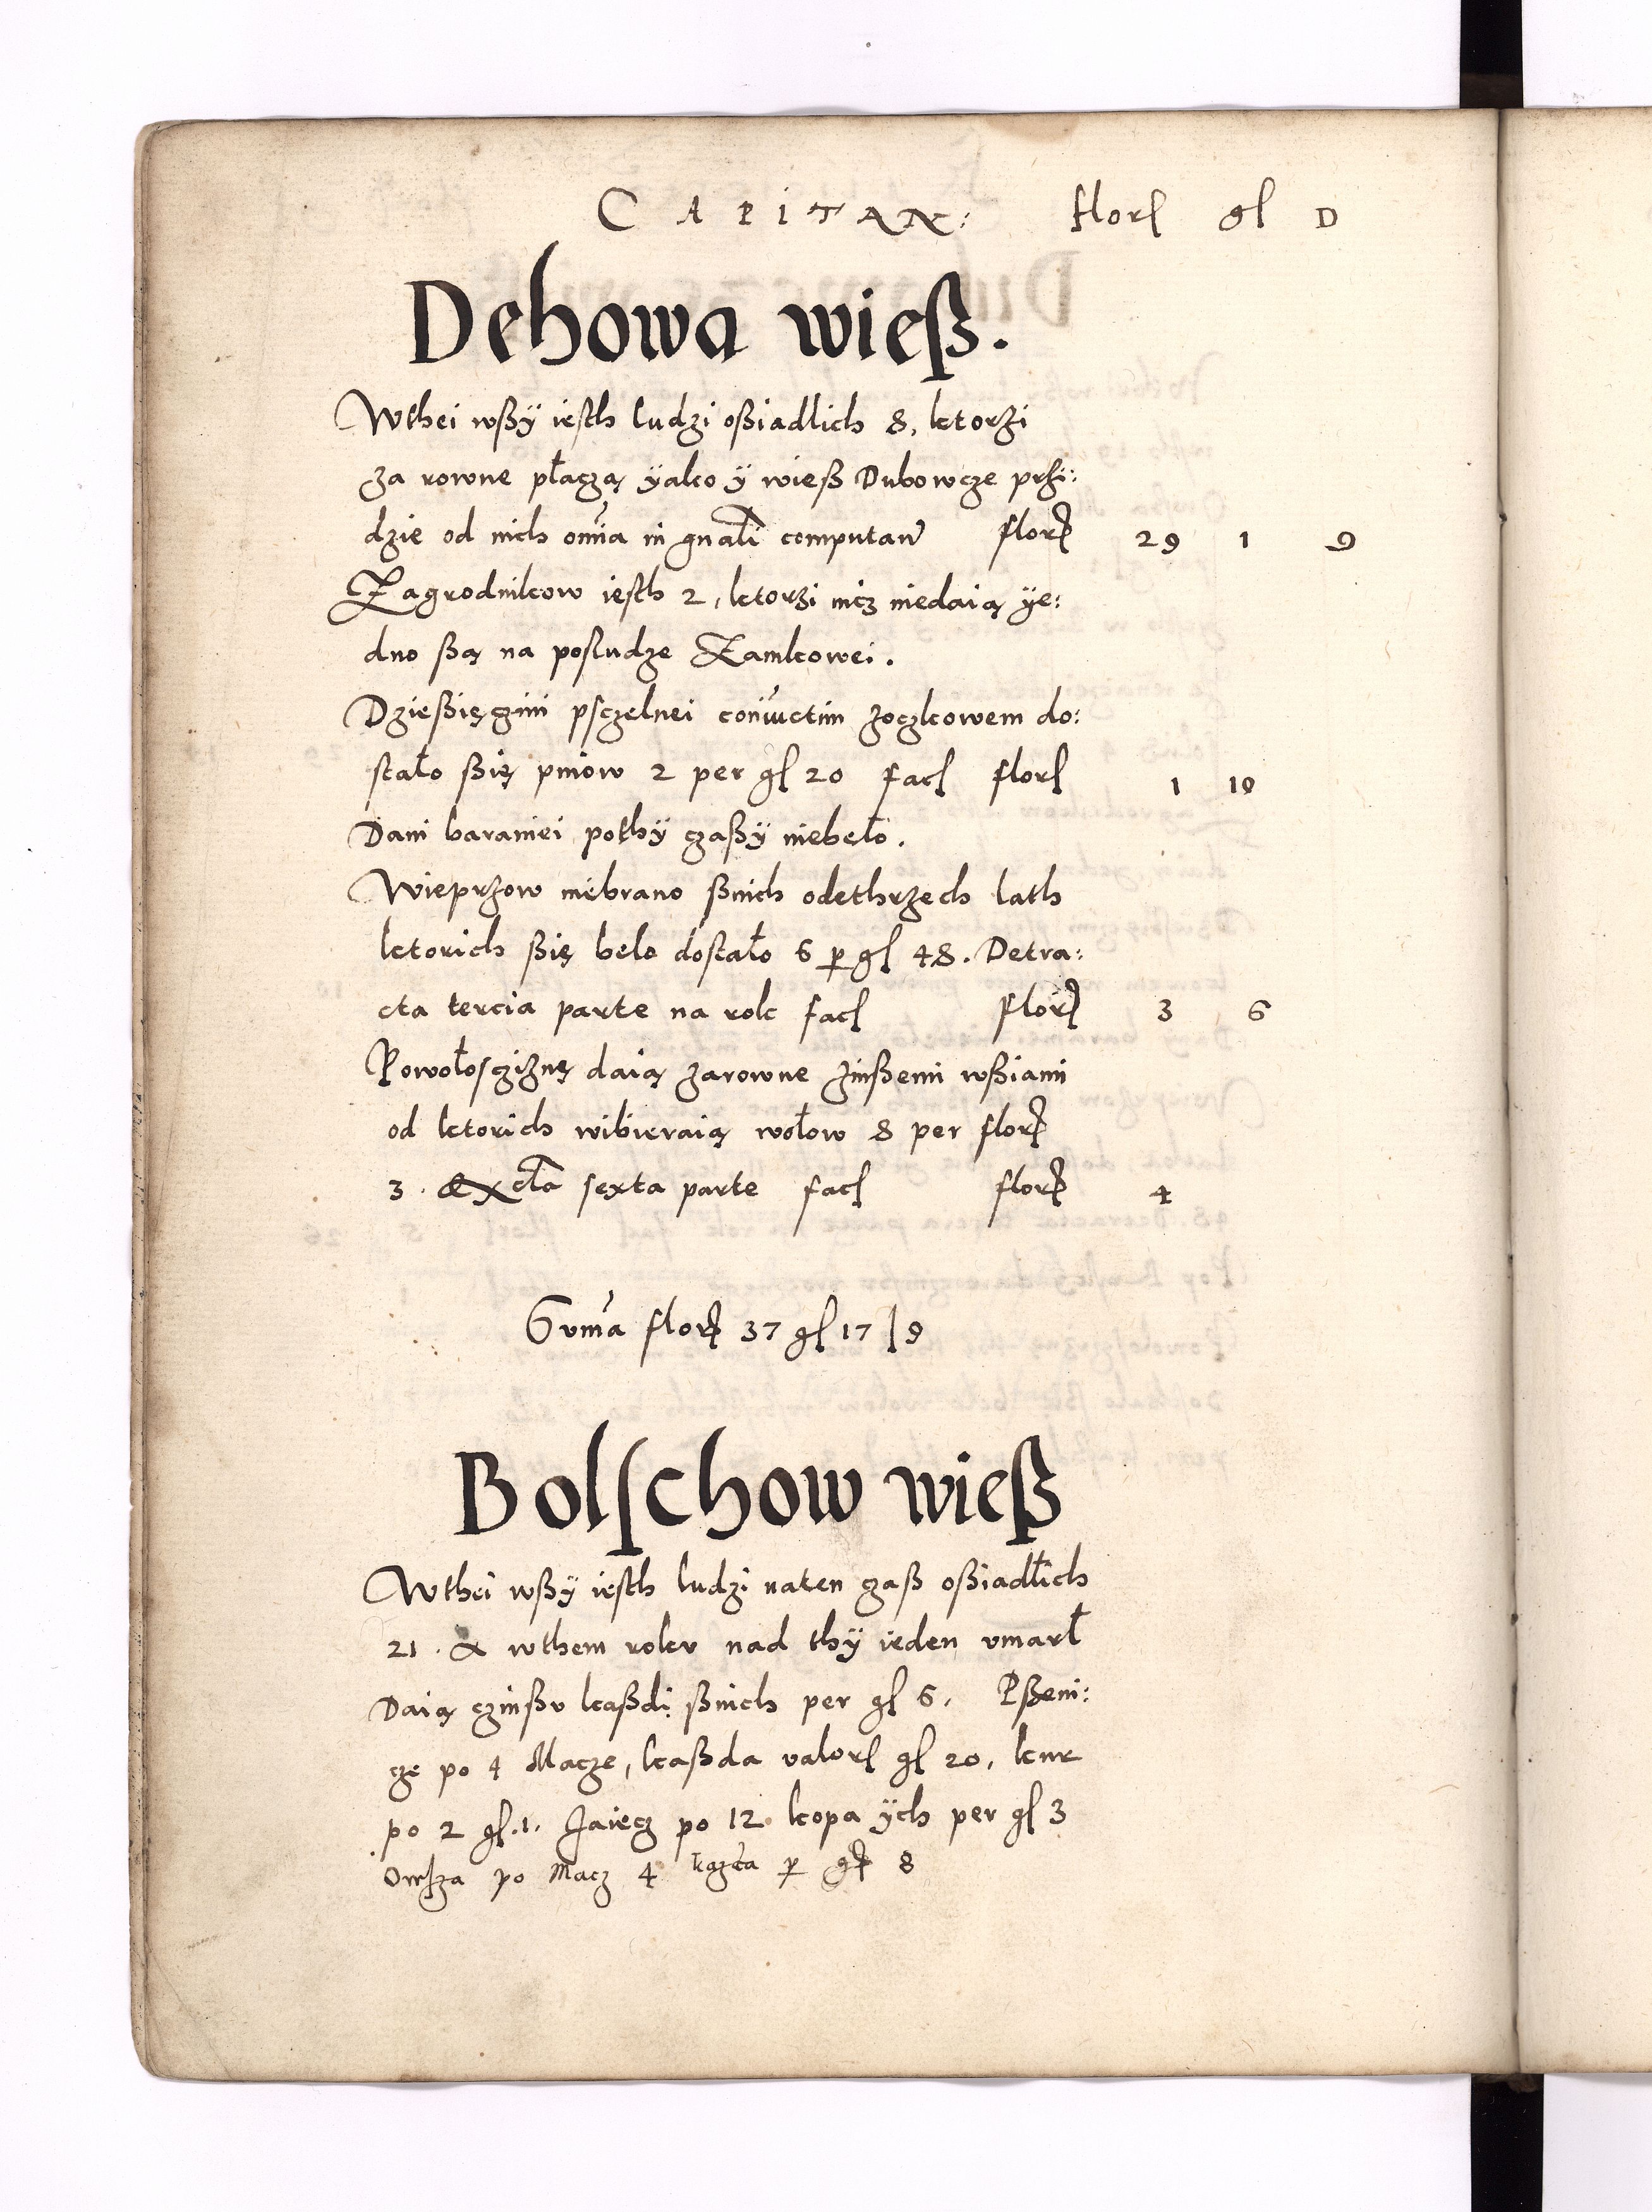 CAPITAN: florſ gſ D
Dehowa wieß.
Wthei wßÿ iesth ludzi oßiadlich 8, ktorzi
za rowne płaczą ÿako ÿ wieß Dubowcze przi:
dzie od nich om̃ia in gnałi computan̄ flor 29 1 9
Zagrodnikow iesth 2, ktorzi nicz niedaią ÿe:
dno ßą na posludze Zamkowei.
Dzießięczini psczelnei coniũctim zoczkowem do:
stało ßię pniow 2 per gſ 20 facſ florſ 1 10
Dani baraniei pothÿ czaßÿ niebeło.
Wieprzow niebrano ßnich odethrzech lath
ktorich ßię belo dostało 6 p gſ 48. Detra:
cta tercia parte na rok facſ flor 3 6
Powołoscziznę daią zarowne zinßemi wßiami
od ktorich wibieraią wołow 8 per flor
3. Excła sexta parte facſ flor 4
Sum̃a flor 37 gſ 17 | 9
Bolschow wieß
Wthei wßÿ iesth ludzi naten czaß oßiadłich
21. & wthem roku nad thÿ ieden vmarł
Daią czinßv kaßdi ßnich per gſ 6. Pßeni:
cze po 4 Macze, kaßda valorſ gſ 20, kur
po 2 gſ.1. Jaiecz po 12. kopa ÿch per gſ 3
Owsza po Macz 4 p g 8